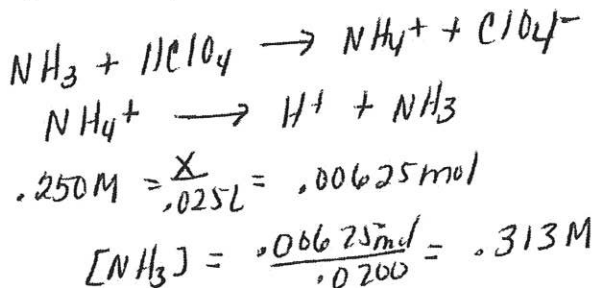 NH₃ + HClO₄ → NH₄⁺ + ClO₄⁻
NH₄⁺ → H⁺ + NH₃
.250M = X/.025L = .00625mol
[NH₃] = .00625mol/.0200 = .313M